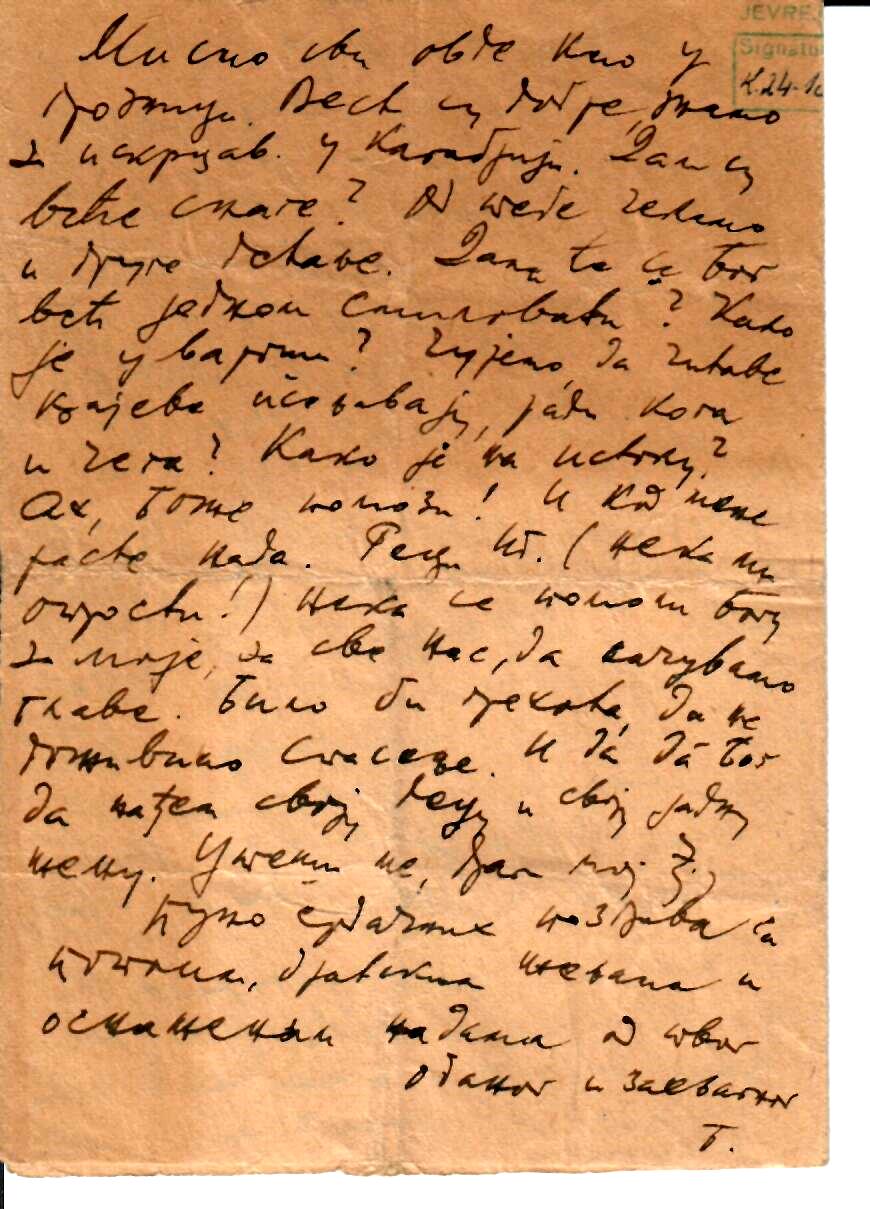 JEVRE
Signatu
K.24-
Мислио сви овде као у
грозници. Вести су добре, знамо
за искрцав. у Калабрији. Да ли су
веће снаге? Од тебе чекамо
и друге детаље. Дали ће се Бог
већ једном смиловати? Како
је у вароши? Чујемо да читаве
крајеве исељавају, ради кога
и чега? Како је на истоку?
Ах, Боже помози! И код мене
расте нада. Реци (нека ми
опрости!) нека се помоли Богу
за моје, за све нас, да сачувамо
главе. Било би грехота, да не
доживимо спасење. И да да Бог
да нађем своју децу и своју јадну
жену. Утеши ме, драги мој Ж.,
Пуно срдачних поздрава са
топлим, братским жељама и
оснаженим надама од твог
оданог и захвалног
Б.